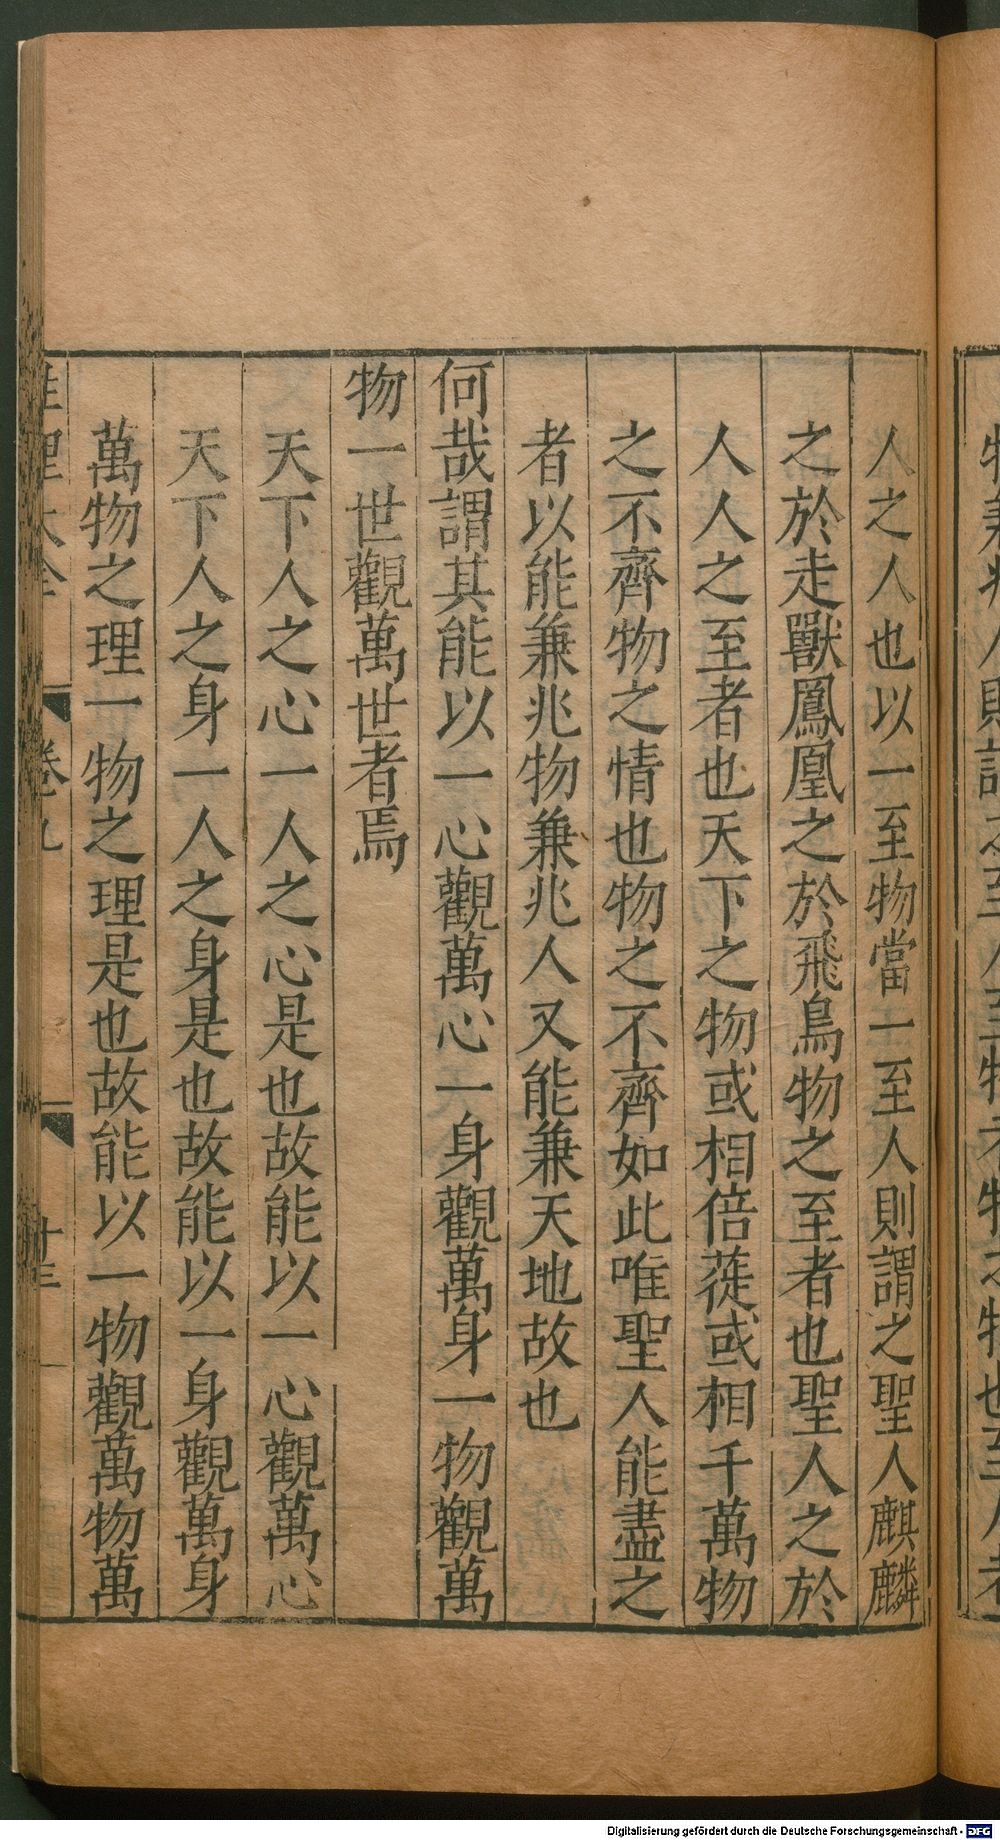 人之人也以一至物當一至人則謂之聖人麒麟
之於走獸鳳凰之於飛鳥物之至者也聖人之於
人人之至者也天下之物或相倍蓰或相千萬物
之不齊物之情也物之不齊如此唯聖人能盡之
者以能兼兆物兼兆人又能兼天地故也
何哉謂其能以一心觀萬心一身觀萬身一物觀萬
物一世觀萬世者焉
天下人之心一人之心是也故能以一心觀萬心
天下人之身一人之身是也故能以一身觀萬身
萬物之理一物之理是也故能以一物觀萬物萬
性理大全 卷九 十三
Digitalisierung gefördert durch die Deutsche Forschungsgemeinschaft - DFG